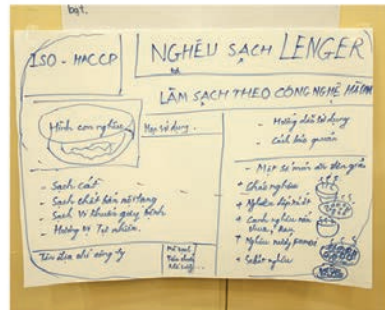 bạt.
ISO - HACCP
NGHÊU SẠCH LENGER
LÀM SẠCH THEO CÔNG NGHỆ
Hình con nghêu
Hạn sử dụng.
- Hướng dẫn sử dụng
- Cách bảo quản
- Sạch cát
- Sạch chất bẩn
- Sạch Vi khuẩn gây bệnh
- Hương vị Tự nhiên.
- Một số món ăn
+ Cháo nghêu
+ Nghêu hấp
+ Canh nghêu nấu
chua,
+ Nghêu nướng
+ nghêu
Tên địa chỉ công ty